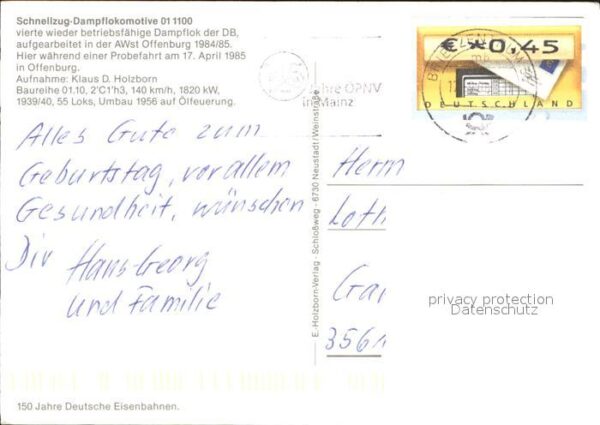 Schnellzug-Dampflokomotive 01 1100
vierte wieder betriebsfähige Dampflok der DB,
aufgearbeitet in der AWst Offenburg 1984/85.
Hier während einer Probefahrt am 17. April 1985
in Offenburg.
Aufnahme: Klaus D. Holzborn
Baureihe 01.10, 2'C1'h3, 140 km/h, 1820 kW,
1939/40, 55 Loks, Umbau 1956 auf Ölfeuerung.
Alles Gute zum
Geburtstag, vor allem
Gesundheit, wünschen
Dir Hans-Georg
und Familie
150 Jahre Deutsche Eisenbahnen.
E. Holzborn-Verlag · Schloßweg · 6730 Neustadt/Weinstraße
ÖPNV
in Mainz
€ 0,45
BRIEFZENTRUM
DEUTSCHLAND
Herrn
Loth
Gar
privacy protection
Datenschutz